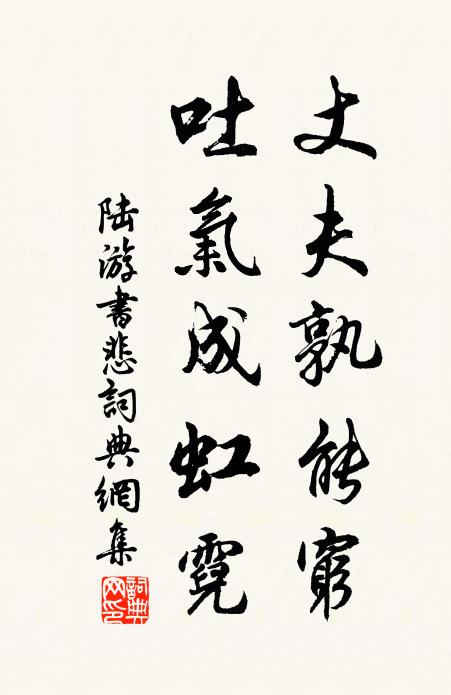 丈夫孰能窮
吐氣成虹霓
陸游書悲詞典網集
詞典
网印